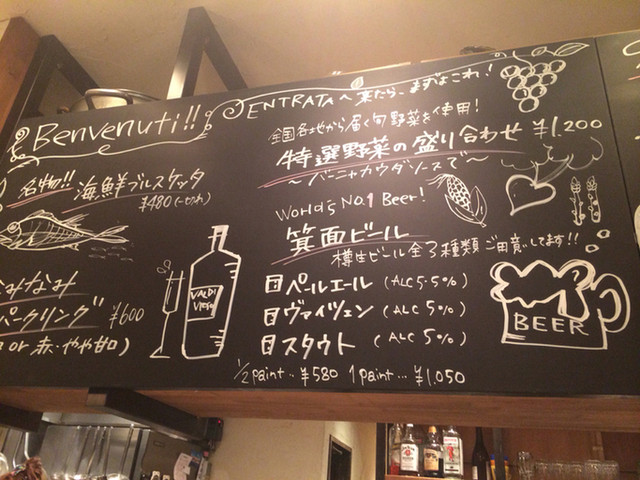 Benvenuti!!
ENTRATAへ来たら、まずはこれ!
名物!! 海鮮ブルスケッタ
¥480(一切れ)
なみなみ
パークリング ¥600
or 赤・やや甘口)
VALDI
全国各地から届く旬野菜を使用!
特選野菜の盛り合わせ ¥1,200
~バーニャカウダソースで~
World's No.1 Beer!
箕面ビール
樽生ビール全3種類ご用意してます!!
ペールエール (ALC 5.5%)
ヴァイツェン (ALC 5%)
スタウト (ALC 5%)
1/2 paint.. ¥580 1 paint... ¥1,050
BEER